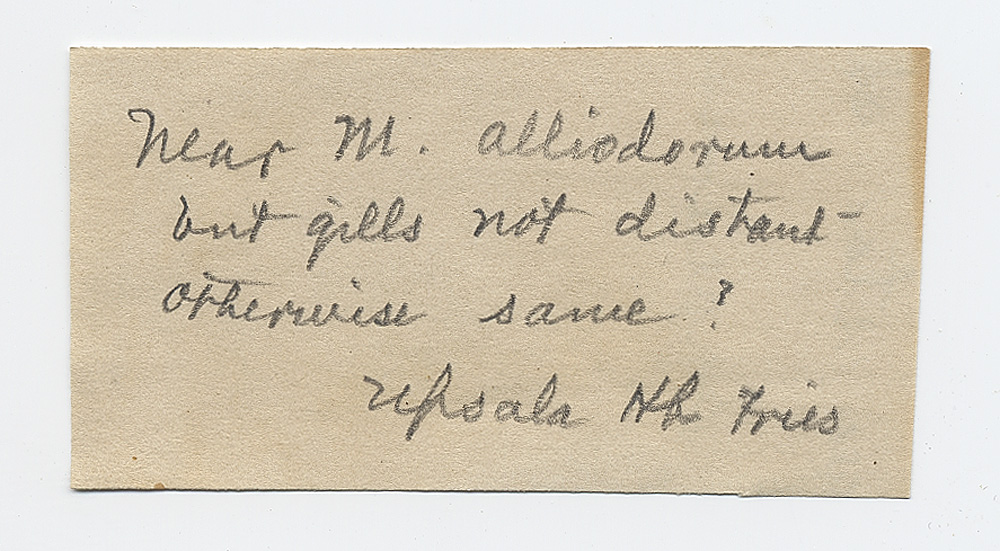 Near M. alliodorum
but gills not distant -
otherwise same ?
Upsala Hb Fries